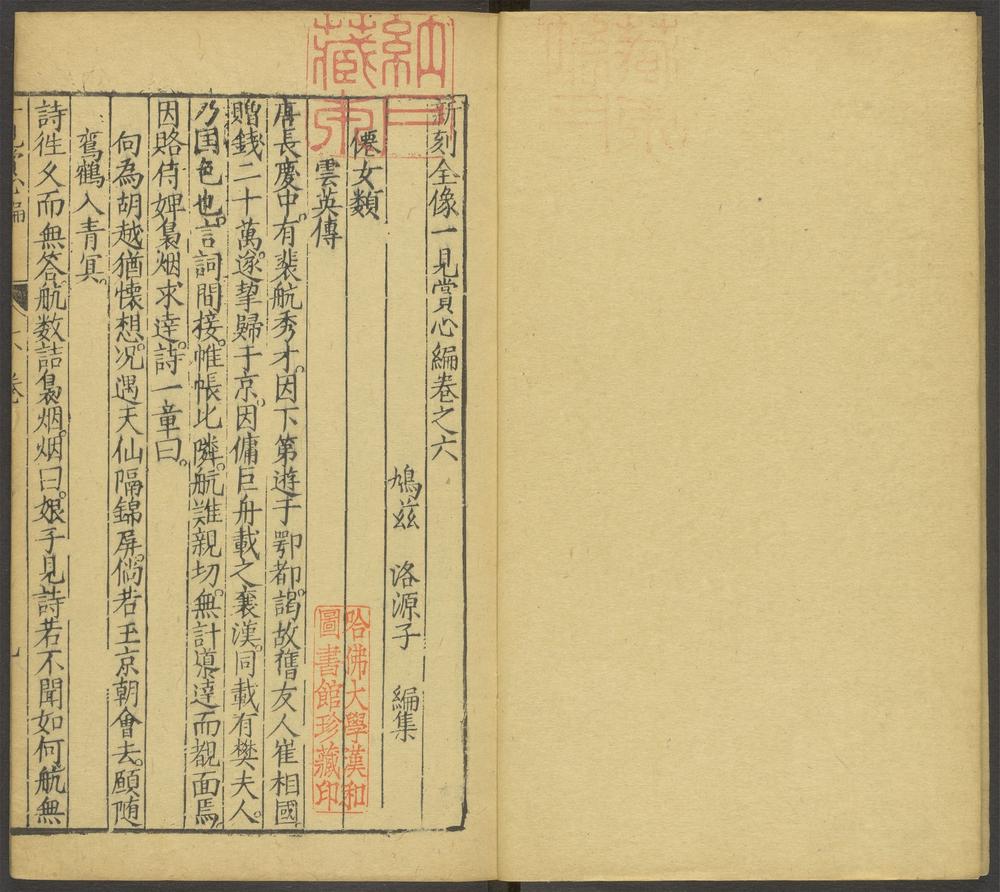 新刻全像一見賞心編卷之六
鳩茲 洛源子 編集
僊女類
雲英傳
唐長慶中有裴航秀才因下第遊于鄂都謁故舊友人崔相國
贈錢二十萬遂挈歸于京因傭巨舟載之襄漢同載有樊夫人
乃国色也言詞間接帷帳比隣航雖親切無計導達而覩面焉
因賂侍婢裊烟求達詩一章曰
向為胡越猶懷想况遇天仙隔錦屏倘若玉京朝會去願随
鸞鶴入青冥
詩徃久而無答航数詰裊烟烟曰娘子見詩若不聞如何航無
哈佛大學漢和
圖書館珍藏印